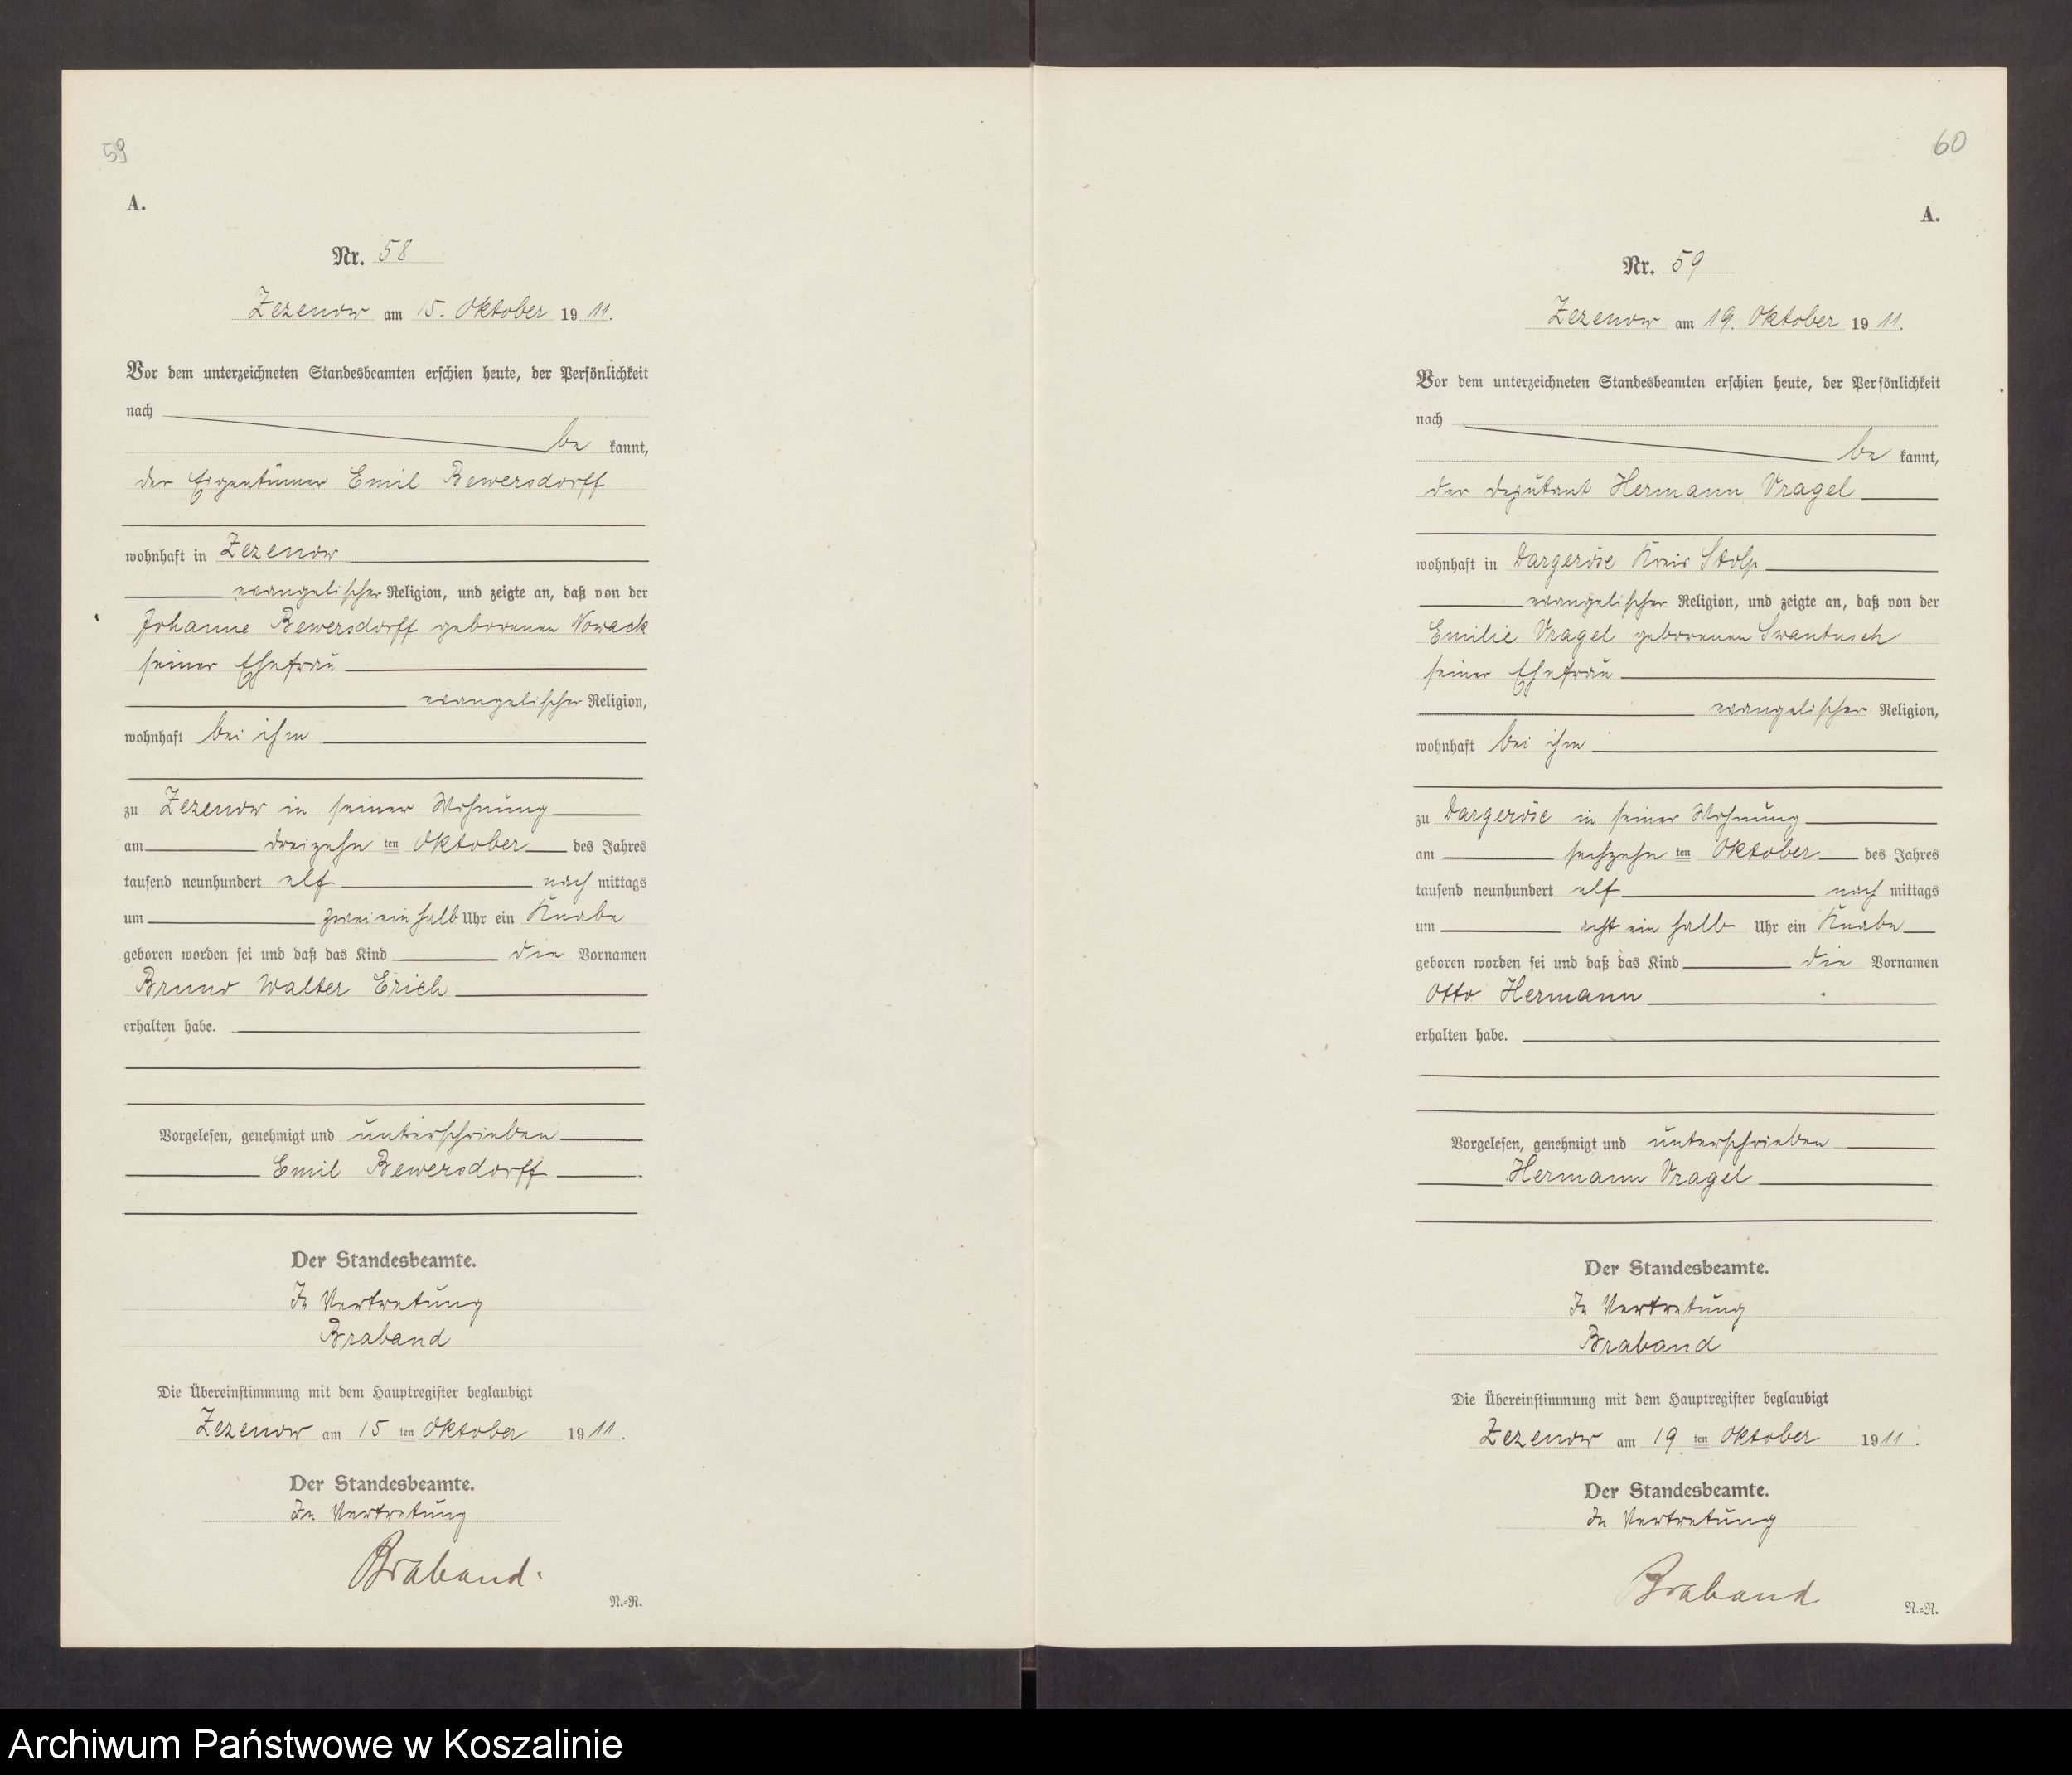 59
A.
Nr. 58
Zezenow am 15. Oktober 1911.
Vor dem unterzeichneten Standesbeamten erschien heute, der Persönlichkeit
nach
be kannt,
der Eigentümer Emil Bewersdorff
wohnhaft in Zezenow
evangelischer Religion, und zeigte an, daß von der
Johanne Bewersdorff geborenen Nowack
seiner Ehefrau
evangelischer Religion,
wohnhaft bei ihm
zu Zezenow in seiner Wohnung
am dreizehn ten Oktober des Jahres
tausend neunhundert elf nach mittags
um zwei ein halb Uhr ein Knabe
geboren worden sei und daß das Kind die Vornamen
Bruno Walter Erich
erhalten habe.
Vorgelesen, genehmigt und unterschrieben
Emil Bewersdorff
Der Standesbeamte.
In Vertretung
Braband
Die Übereinstimmung mit dem Hauptregister beglaubigt
Zezenow am 15 ten Oktober 1911.
Der Standesbeamte.
In Vertretung
Braband.
N.=R.
60
A.
Nr. 59
Zezenow am 19. Oktober 1911.
Vor dem unterzeichneten Standesbeamten erschien heute, der Persönlichkeit
nach
be kannt,
der Deputant Hermann Vragel
wohnhaft in Dargeröse Kreis Stolp
evangelischer Religion, und zeigte an, daß von der
Emilie Vragel geborenen Swantusch
seiner Ehefrau
evangelischer Religion,
wohnhaft bei ihm
zu Dargeröse in seiner Wohnung
am sechzehn ten Oktober des Jahres
tausend neunhundert elf nach mittags
um acht ein halb Uhr ein Knabe
geboren worden sei und daß das Kind die Vornamen
Otto Hermann
erhalten habe.
Vorgelesen, genehmigt und unterschrieben
Hermann Vragel
Der Standesbeamte.
In Vertretung
Braband
Die Übereinstimmung mit dem Hauptregister beglaubigt
Zezenow am 19 ten Oktober 1911.
Der Standesbeamte.
In Vertretung
Braband
N.=R.
Archiwum Państwowe w Koszalinie